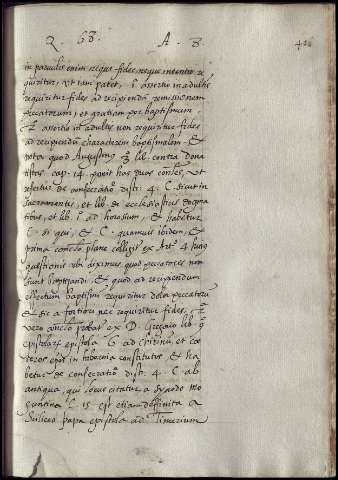 Q. 68. A. 8. 416
in parvulis enim neque fides neque intentio re
quiritur, ut iam patet, 1 assertio in adultis
requiritur fides ad recipiendã remissionem
peccatorum, et gratiam per baptismum
2ª assertio in adultis non requiritur fides
ad recipiendũ characterem baptismalem. Et
nota quod Augustinus 3 lib. contra dona
tistas cap. 14. ponit has duas concłes, et
refertur de consecratiõ disti. 4. C. sicut in
sacramentis, et lib. de ecclesiasticis dogma
tibus, et lib. 1. ad et habetur
C. si qui, et C. quamvis ibidem, et
prima conclo plane colligit ex Art. 4 huiꝰ
quęstionis ubi diximus quod peccatores non
sunt baptizandi, et quod ad recipiendum
effectum baptismi requiritur dolor peccatorũ
et sic a fortiori nec requiritur fides, 2ª
vero conclo probat ex D. Gregorio lib. 9
epistolarũ epistola 6 ad et cæ
teros ępõs in constitutos et ha
betur de consecratiõ disti. 4. C. ab
antiqua, qui locus citatur a synodo
C. 15 est etiam deffinita a
Siliceo papa epistola ad